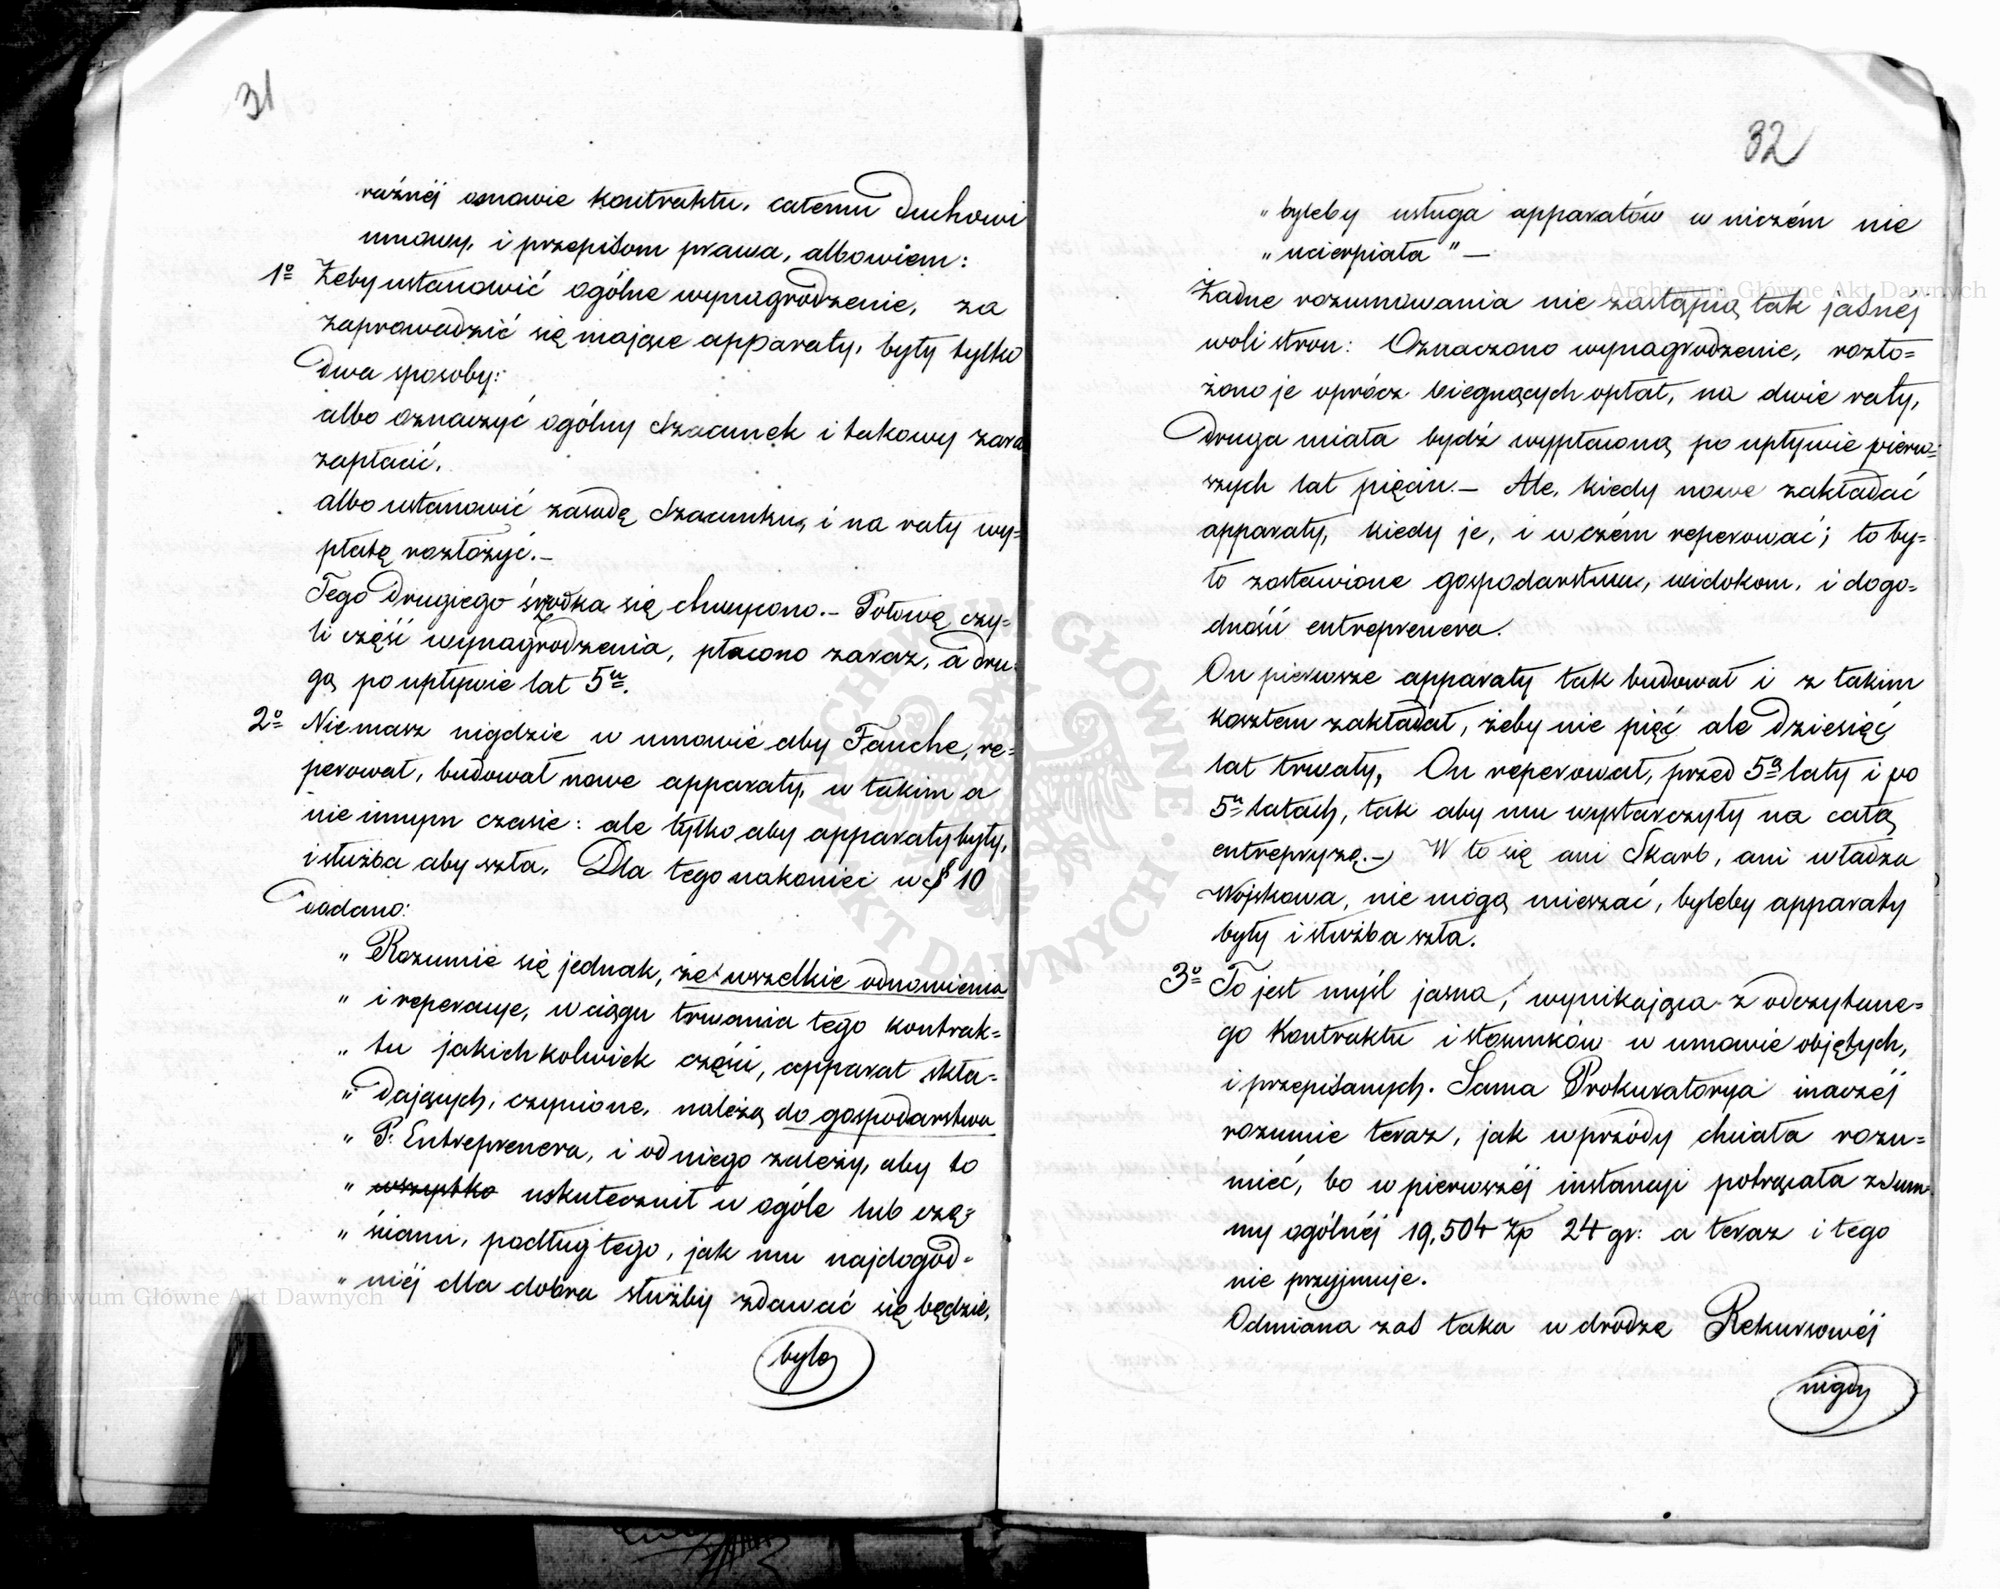 31
raźnéj osnowie kontraktu, całemu duchowi
umowy, i przepisom prawa, albowiem:
1º Żeby ustanowić ogólne wynagrodzenie, za
zaprowadzić się mające apparaty, były tylko
dwa sposoby:
albo oznaczyć ogólny szacunek i takowy zaraz
zapłacić,
albo ustanowić zasadę szacunku, i na raty wy=
płatę rozłożyć.—
Tego drugiego środka się chwycono.— Połowę czy=
li część wynagrodzenia, płacono zaraz, a dru=
gą po upływie lat 5u.
2º Niemasz nigdzie w umowie aby Fauche, re=
perował, budował nowe apparaty, w takim a
nie innym czasie: ale tylko aby apparaty były,
i służba aby szła. Dla tego nakoniec w § 10
dodano:
„ Rozumie się jednak, że wszelkie odnowienia
„ i reperacye, w ciągu trwania tego kontrak=
„ tu jakichkolwiek części, apparat skła=
„ dających, czynione, należą do gospodarstwa
„ P. Entreprenera, i od niego zależy, aby to
„ wszystko uskutecznił w ogóle lub czę=
„ ściami, podług tego, jak mu najdogod=
„ niéj dla dobra służby zdawać się będzie,
byle
32
„ byleby usługa apparatów w niczém nie
„ ucierpiała" —
Żadne rozumowania nie zastąpią tak jasnéj
woli stron: Oznaczono wynagrodzenie, rozło=
żono je oprócz biegnących opłat, na dwie raty,
druga miała bydź wypłaconą po upływie pierw=
szych lat pięciu.— Ale, kiedy nowe zakładać
apparaty, kiedy je, i w czém reperować; to by=
ło zostawione gospodarstwu, widokom, i dogo=
dności entreprenera.
On pierwsze apparaty tak budował i z takim
kosztem zakładał, żeby nie pięć ale dziesięć
lat trwały, On reperował, przed 5ą laty i po
5u latach, tak aby mu wystarczyły na całą
entrepryzę.— W to się ani Skarb, ani władza
Wojskowa, nie mogą mieszać, byleby apparaty
były i służba szła.
3º To jest myśl jasna, wynikająca z odczytane=
go Kontraktu i stosunków w umowie objętych,
i przepisanych. Sama Prokuratorya inaczéj
rozumie teraz, jak wprzódy chciała rozu=
mieć, bo w pierwszéj instancyi potrącała z Sum=
my ogólnéj 19,504 Złp 24 gr: a teraz i tego
nie przyjmuje.
Odmiana zaś taka w drodze Rekursowéj
nigdy
Archiwum Główne Akt Dawnych
Archiwum Główne Akt Dawnych
ARCHIWUM GŁÓWNE AKT DAWNYCH